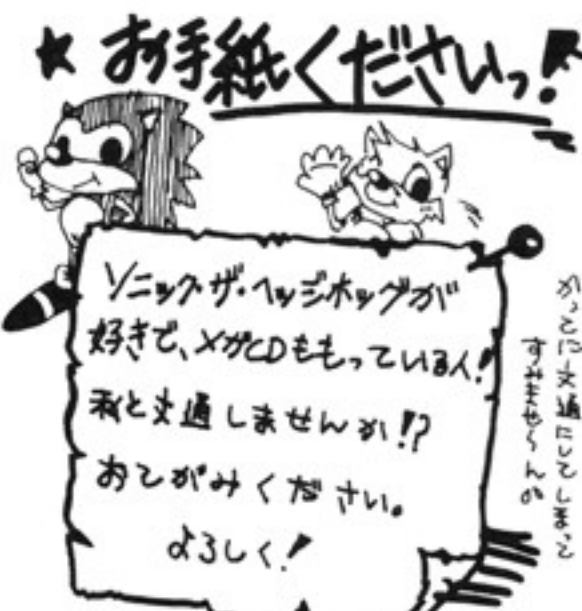 ★お手紙くださいっ!
ソニック・ザ・ヘッジホッグが
好きで、メガCDももっている人!
私と文通しませんか!?
おてがみください。
よろしく!
かってに文通にしてしまって
すみませ〜ん